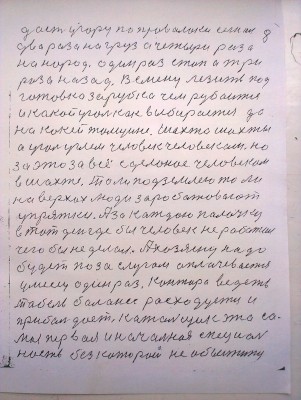 дает угору по проволоки сигнал 8
два раза на груз а четыри раза
на народ. один раз стоп а три
раза назад. В смену лезить под
готовко зарубка чем рубается
и какой угол как выбирается да
на какой толщине. Шахта шахты
а угол углем человек человекам. но
за это за всё сделоное человекам
в шахте. То ли под землею то ли
на верхах люди заработовают
упряжки. А за каждою палочку
в тот день где бы человек не работал
чего бы не делал. А хозяину надо
будет по заслугам оплачевается
умец один раз. Контора ведеть
табель баланс расходует и
прибал дает. Катал это са-
мая первая и начальная специал
ность без которой не